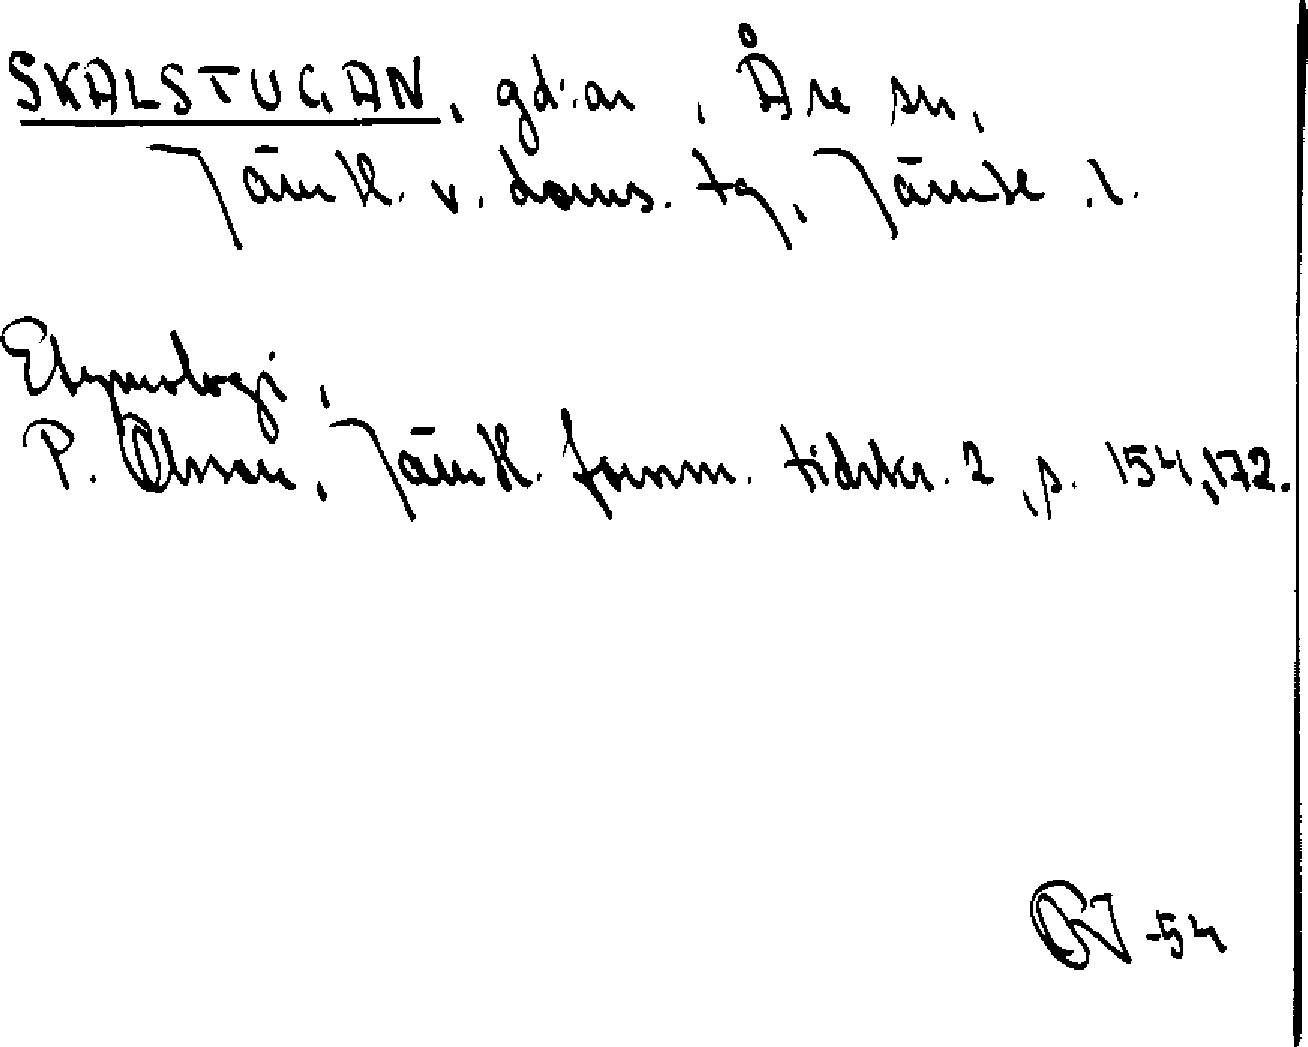 SKALSTUGAN, gd:ar, Åre sn,
Jämtl. v. doms. tg, Jämtl. l.
Etymologi,
P. Olsson, Jämtl. fornm. tidskr. 2, s. 154,172.
-54